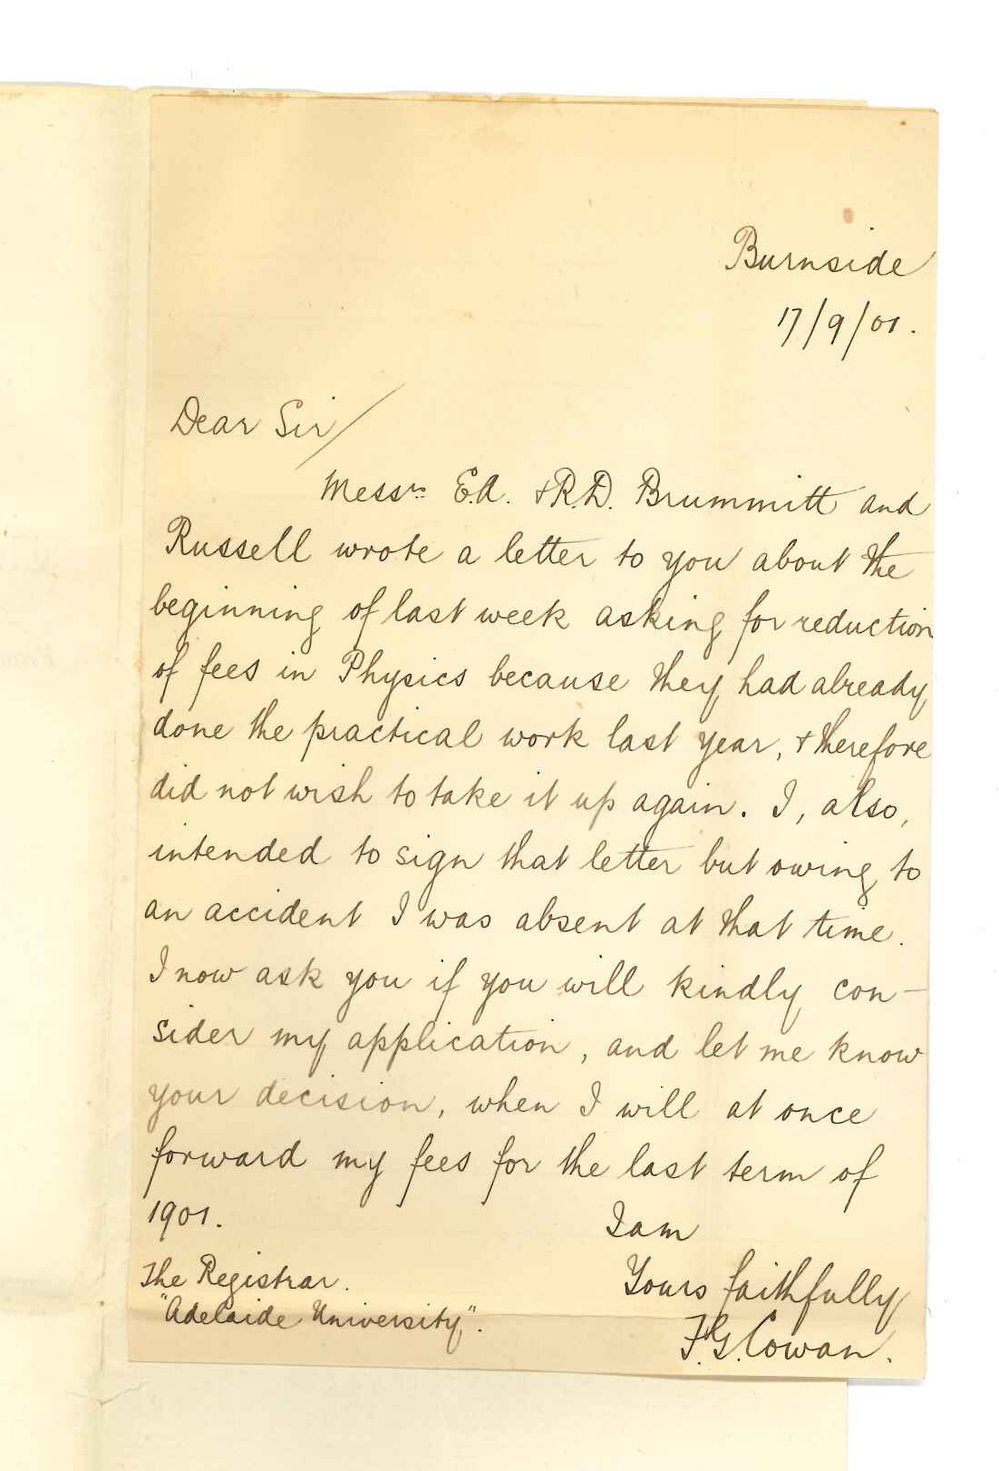 Burnside
17/9/01.
Dear Sir/
Messrs. E.A. & R.D. Brummitt and
Russell wrote a letter to you about the
beginning of last week asking for reduction
of fees in Physics because they had already
done the practical work last year, & therefore
did not wish to take it up again. I, also,
intended to sign that letter but owing to
an accident I was absent at that time.
I now ask you if you will kindly con-
sider my application, and let me know
your decision, when I will at once
forward my fees for the last term of
1901.
I am
Yours faithfully
F.G. Cowan.
The Registrar.
"Adelaide University".